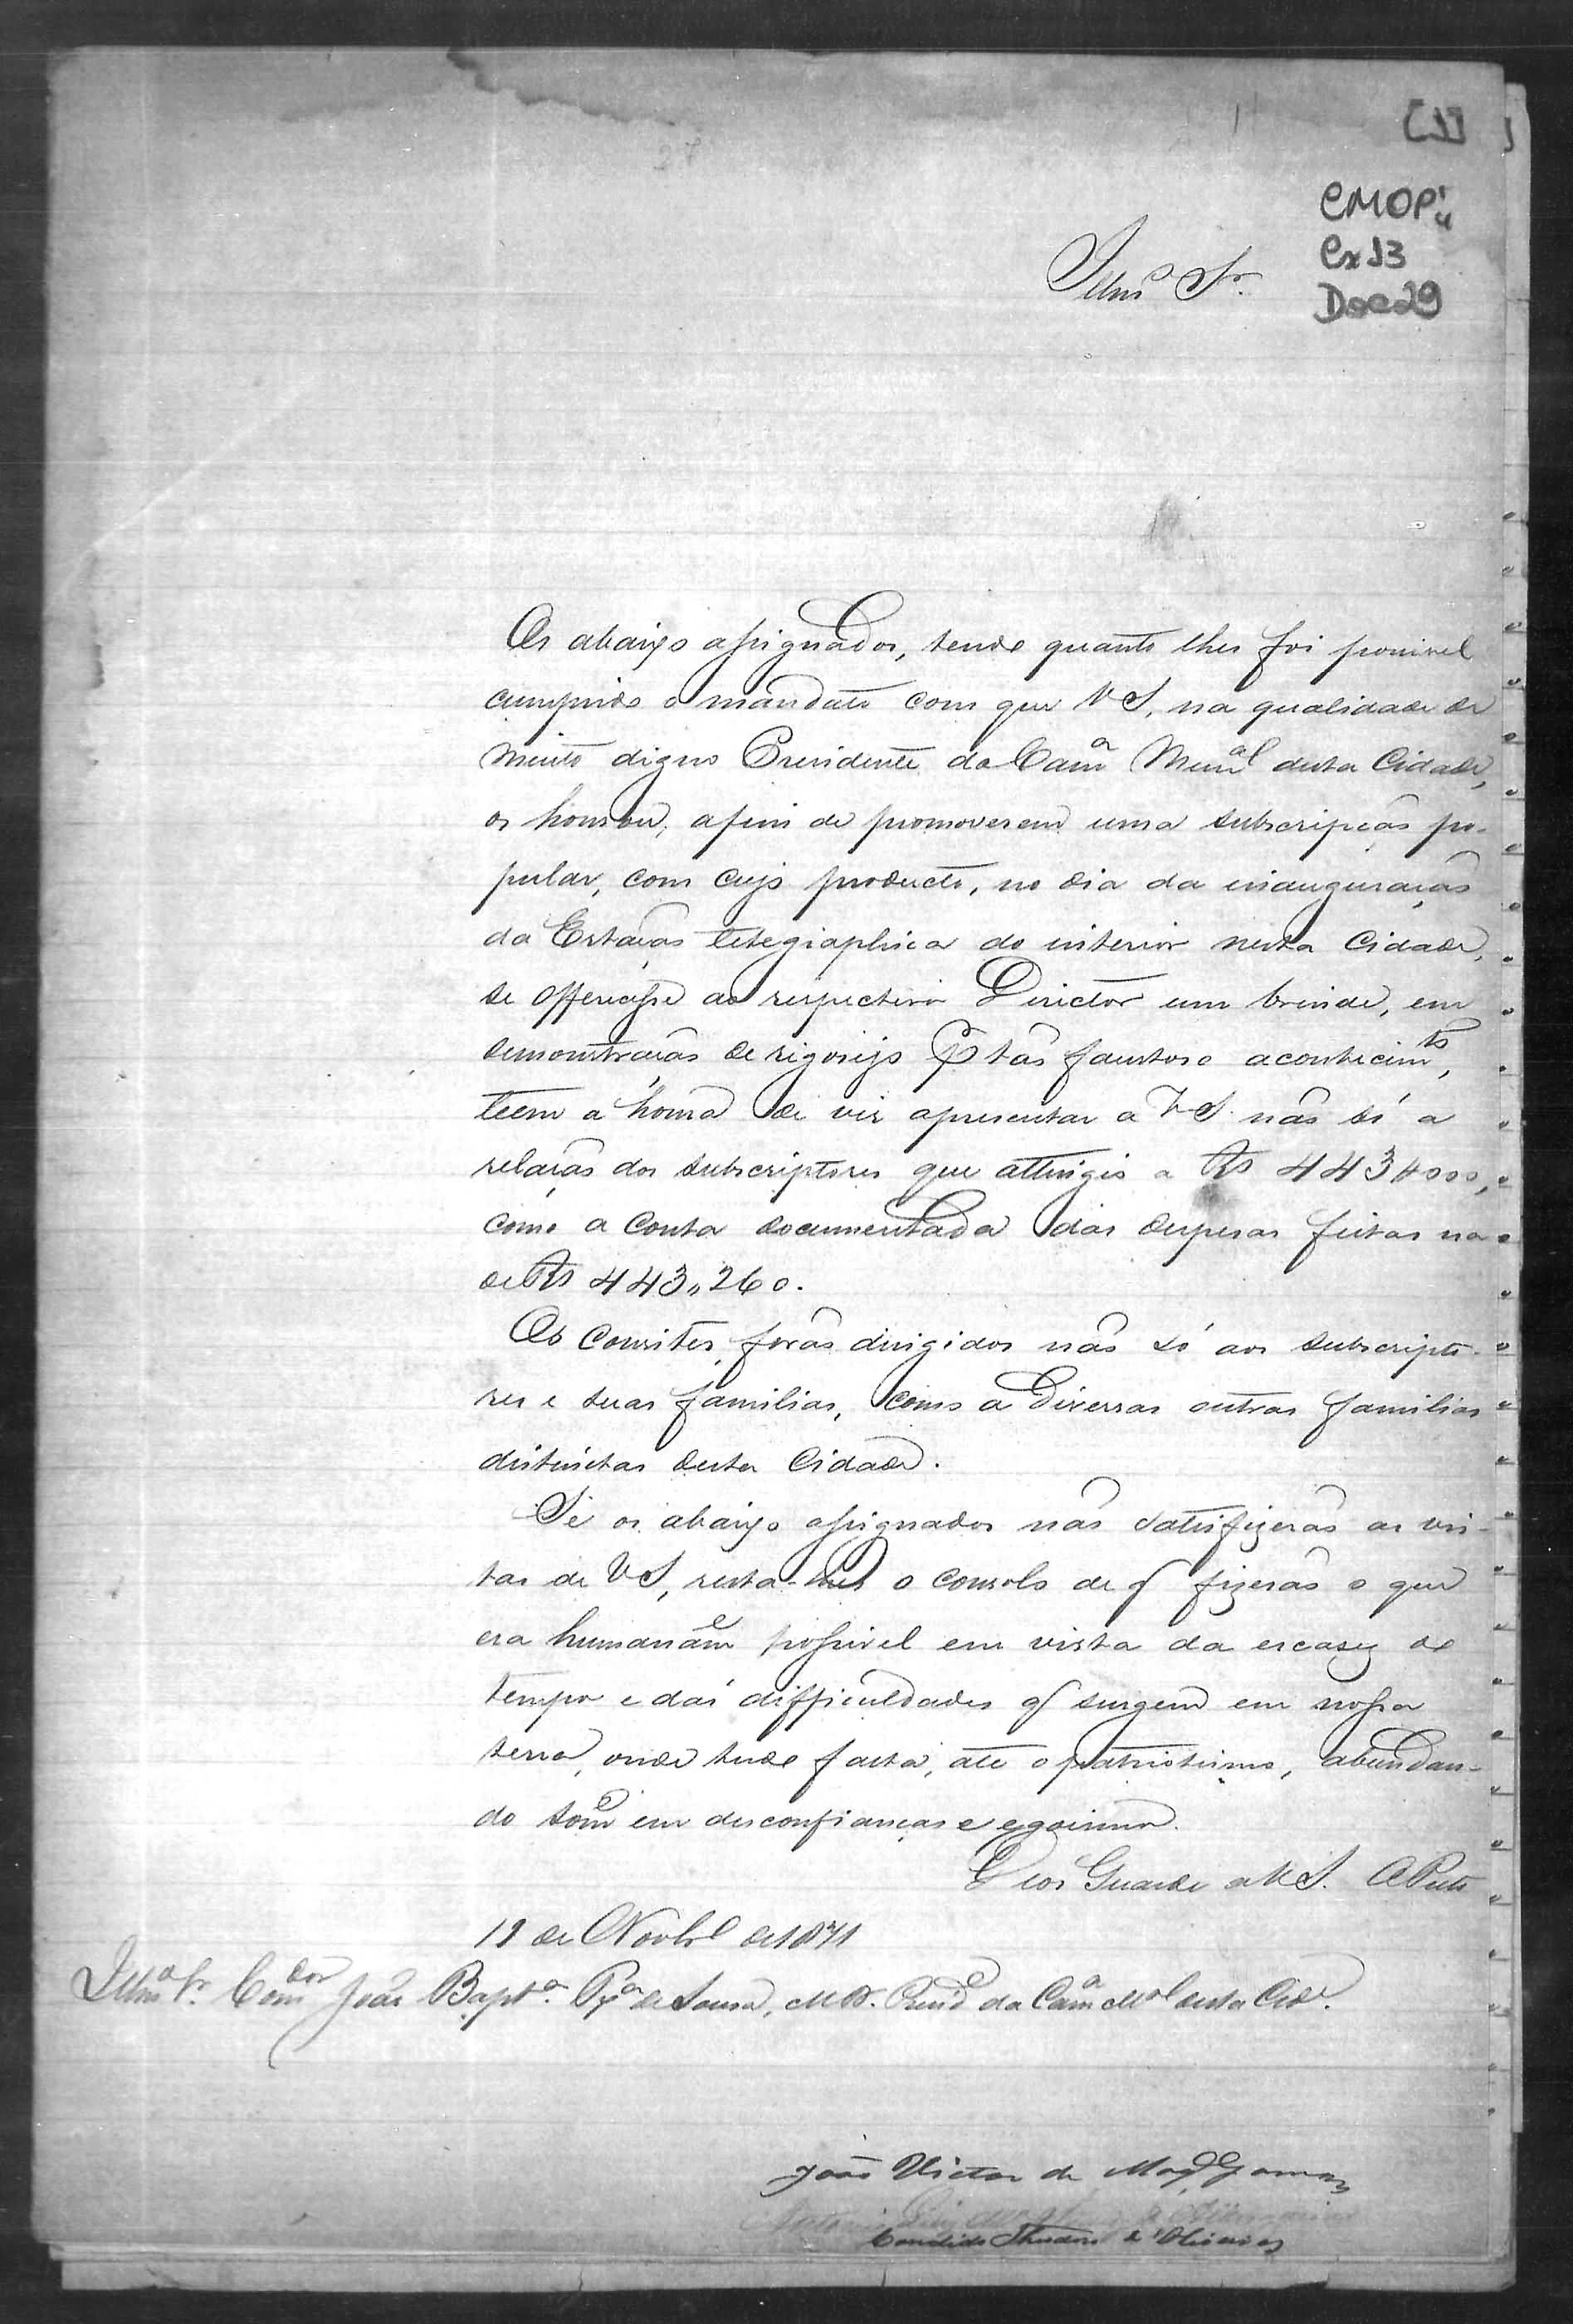 [1]
CMOP"
Cx 13
Doc 29
Illmo Sr.
Os abaixo assignados, tendo quanto lhes foi possivel
cumprido o mandato com que V S, na qualidade de
muito digno Presidente da Camª Munal desta Cidade,
os honrou, afim de promoverem uma subscripção po-
pular, com cujo producto, no dia da inauguração
da Estação telegraphica do interior nesta Cidade,
se offerecesse ao respectivo Director um brinde, em
demonstração de rigosijo p tão faustoso acontecimto,
teem a honra de vir apresentar a V S. não só a
relação dos subscriptores que attingio a Rs 443#000,
como a conta documentada das despesas feitas na
de Rs 443,,260.
Os convites forão dirigidos não só aos subscripto-
res e suas familias, como a diversas outras familias
distinctas desta Cidade.
Se os abaixo assignados não satisfizerão as vis-
tas de V S, resta-lhes o consolo de q fizerão o que
era humaname possivel em vista da escasez de
tempo e das difficuldades q surgem em nossa
terra, onde tudo falta, até o patriotismo, abundan-
do some em desconfianças e egoismo.
Deos Guarde a V S. O Preto
12 de Novbro de 1871
Illmo Sr. Comdor João Baptª. Frª de Sousa, M D. Preside da Camª Mal desta Cide.
João Victor de Magꝭ Gomes
Candido Theodoro de Oliveira